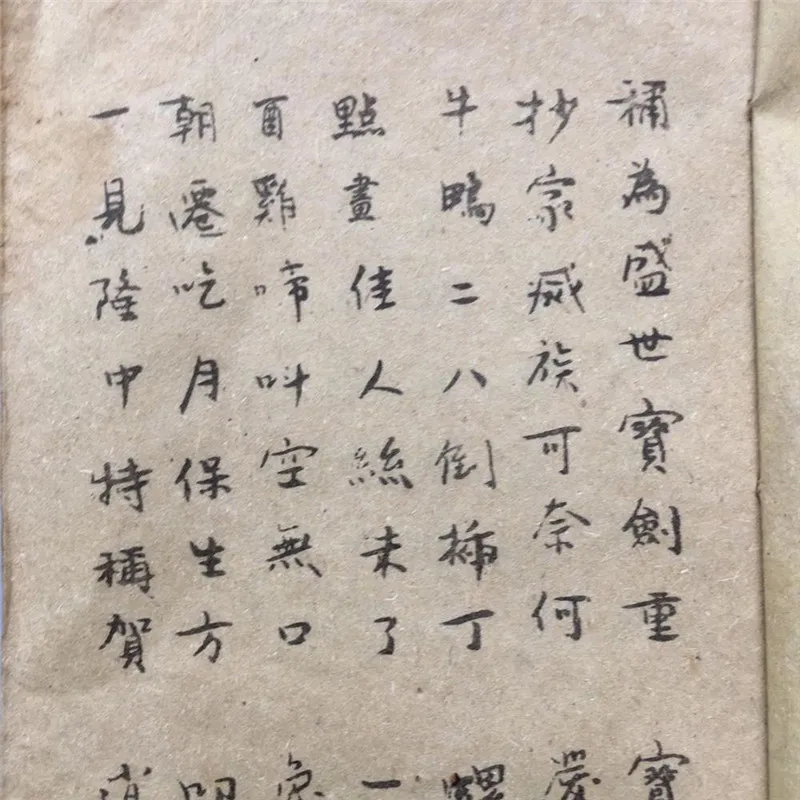 補為盛世寶劍重
抄家滅族可奈何
牛鴨二八倒插丁
點畫佳人絲未了
酉雞啼叫空無口
朝遷吃月保生方
一見隆中特稱賀
寶
愛
一